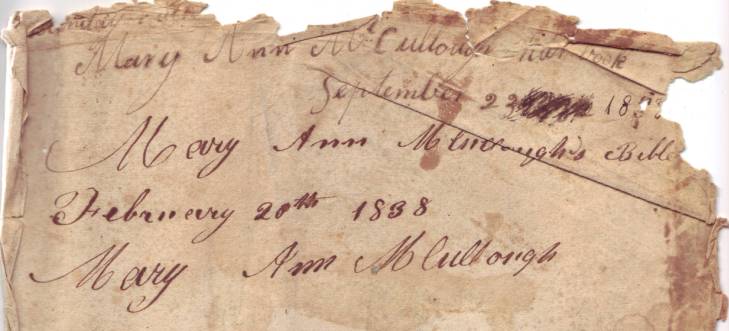 Mary Ann McCullough her book
September 23 18
Mary Ann McCullough's Bible
February 20th 1838
Mary Ann McCullough